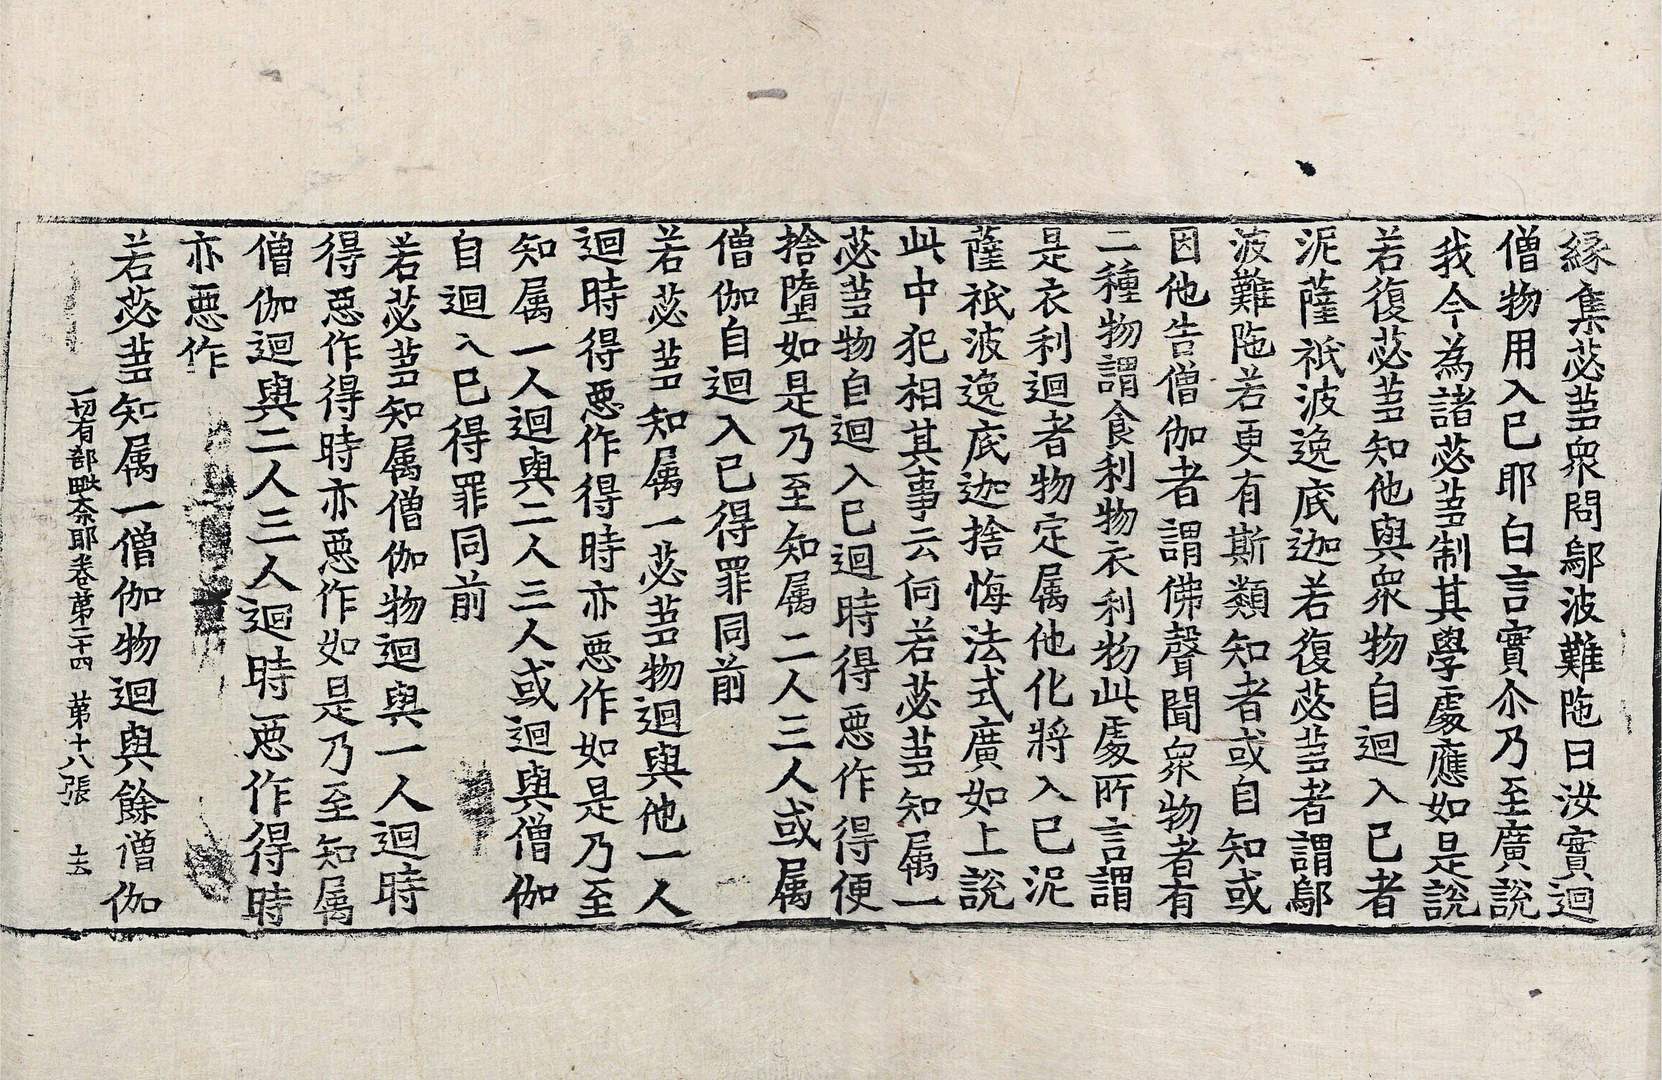 縁集苾蒭衆問鄔波難陁曰汝實迴
僧物用入己耶白言實尒乃至廣說
我今為諸苾蒭制其學處應如是說
若復苾蒭知他與衆物自迴入己者
泥薩祇波逸底迦若復苾蒭者謂鄔
波難陁若更有斯類知者或自知或
因他告僧伽者謂佛聲聞衆物者有
二種物謂食利物衣利物此處所言謂
是衣利迴者物定属他化將入己泥
薩祇波逸底迦捨悔法式廣如上說
此中犯相其事云何若苾蒭知属一
苾蒭物自迴入己迴時得惡作得便
捨墮如是乃至知属二人三人或属
僧伽自迴入己得罪同前
若苾蒭知属一苾蒭物迴與他一人
迴時得惡作得時亦惡作如是乃至
知属一人迴與二人三人或迴與僧伽
自迴入己得罪同前
若苾蒭知属僧伽物迴與一人迴時
得惡作得時亦惡作如是乃至知属
僧伽迴與二人三人迴時惡作得時
亦惡作
若苾蒭知属一僧伽物迴與餘僧伽
一切有部毗奈耶卷第二十四 第十八張